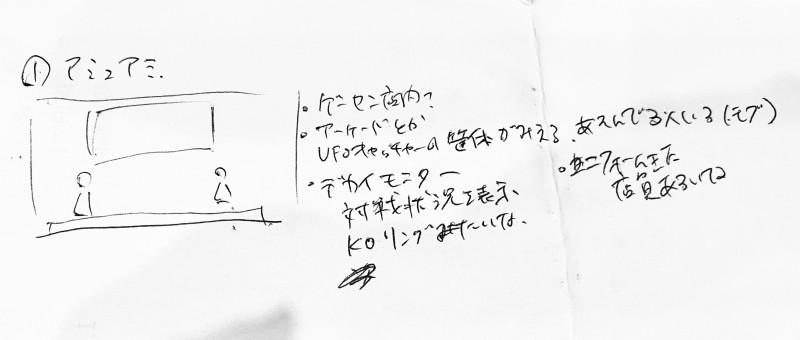 ① アミュアミ.
・ゲーセン店内?
・アーケードとか
UFOキャッチャーの筐体がみえる. あそんでる人いる(モブ)
・デカイモニター
対戦状況を表示
KOリングみたいな.
・ユニフォームきた
店員あるいてる